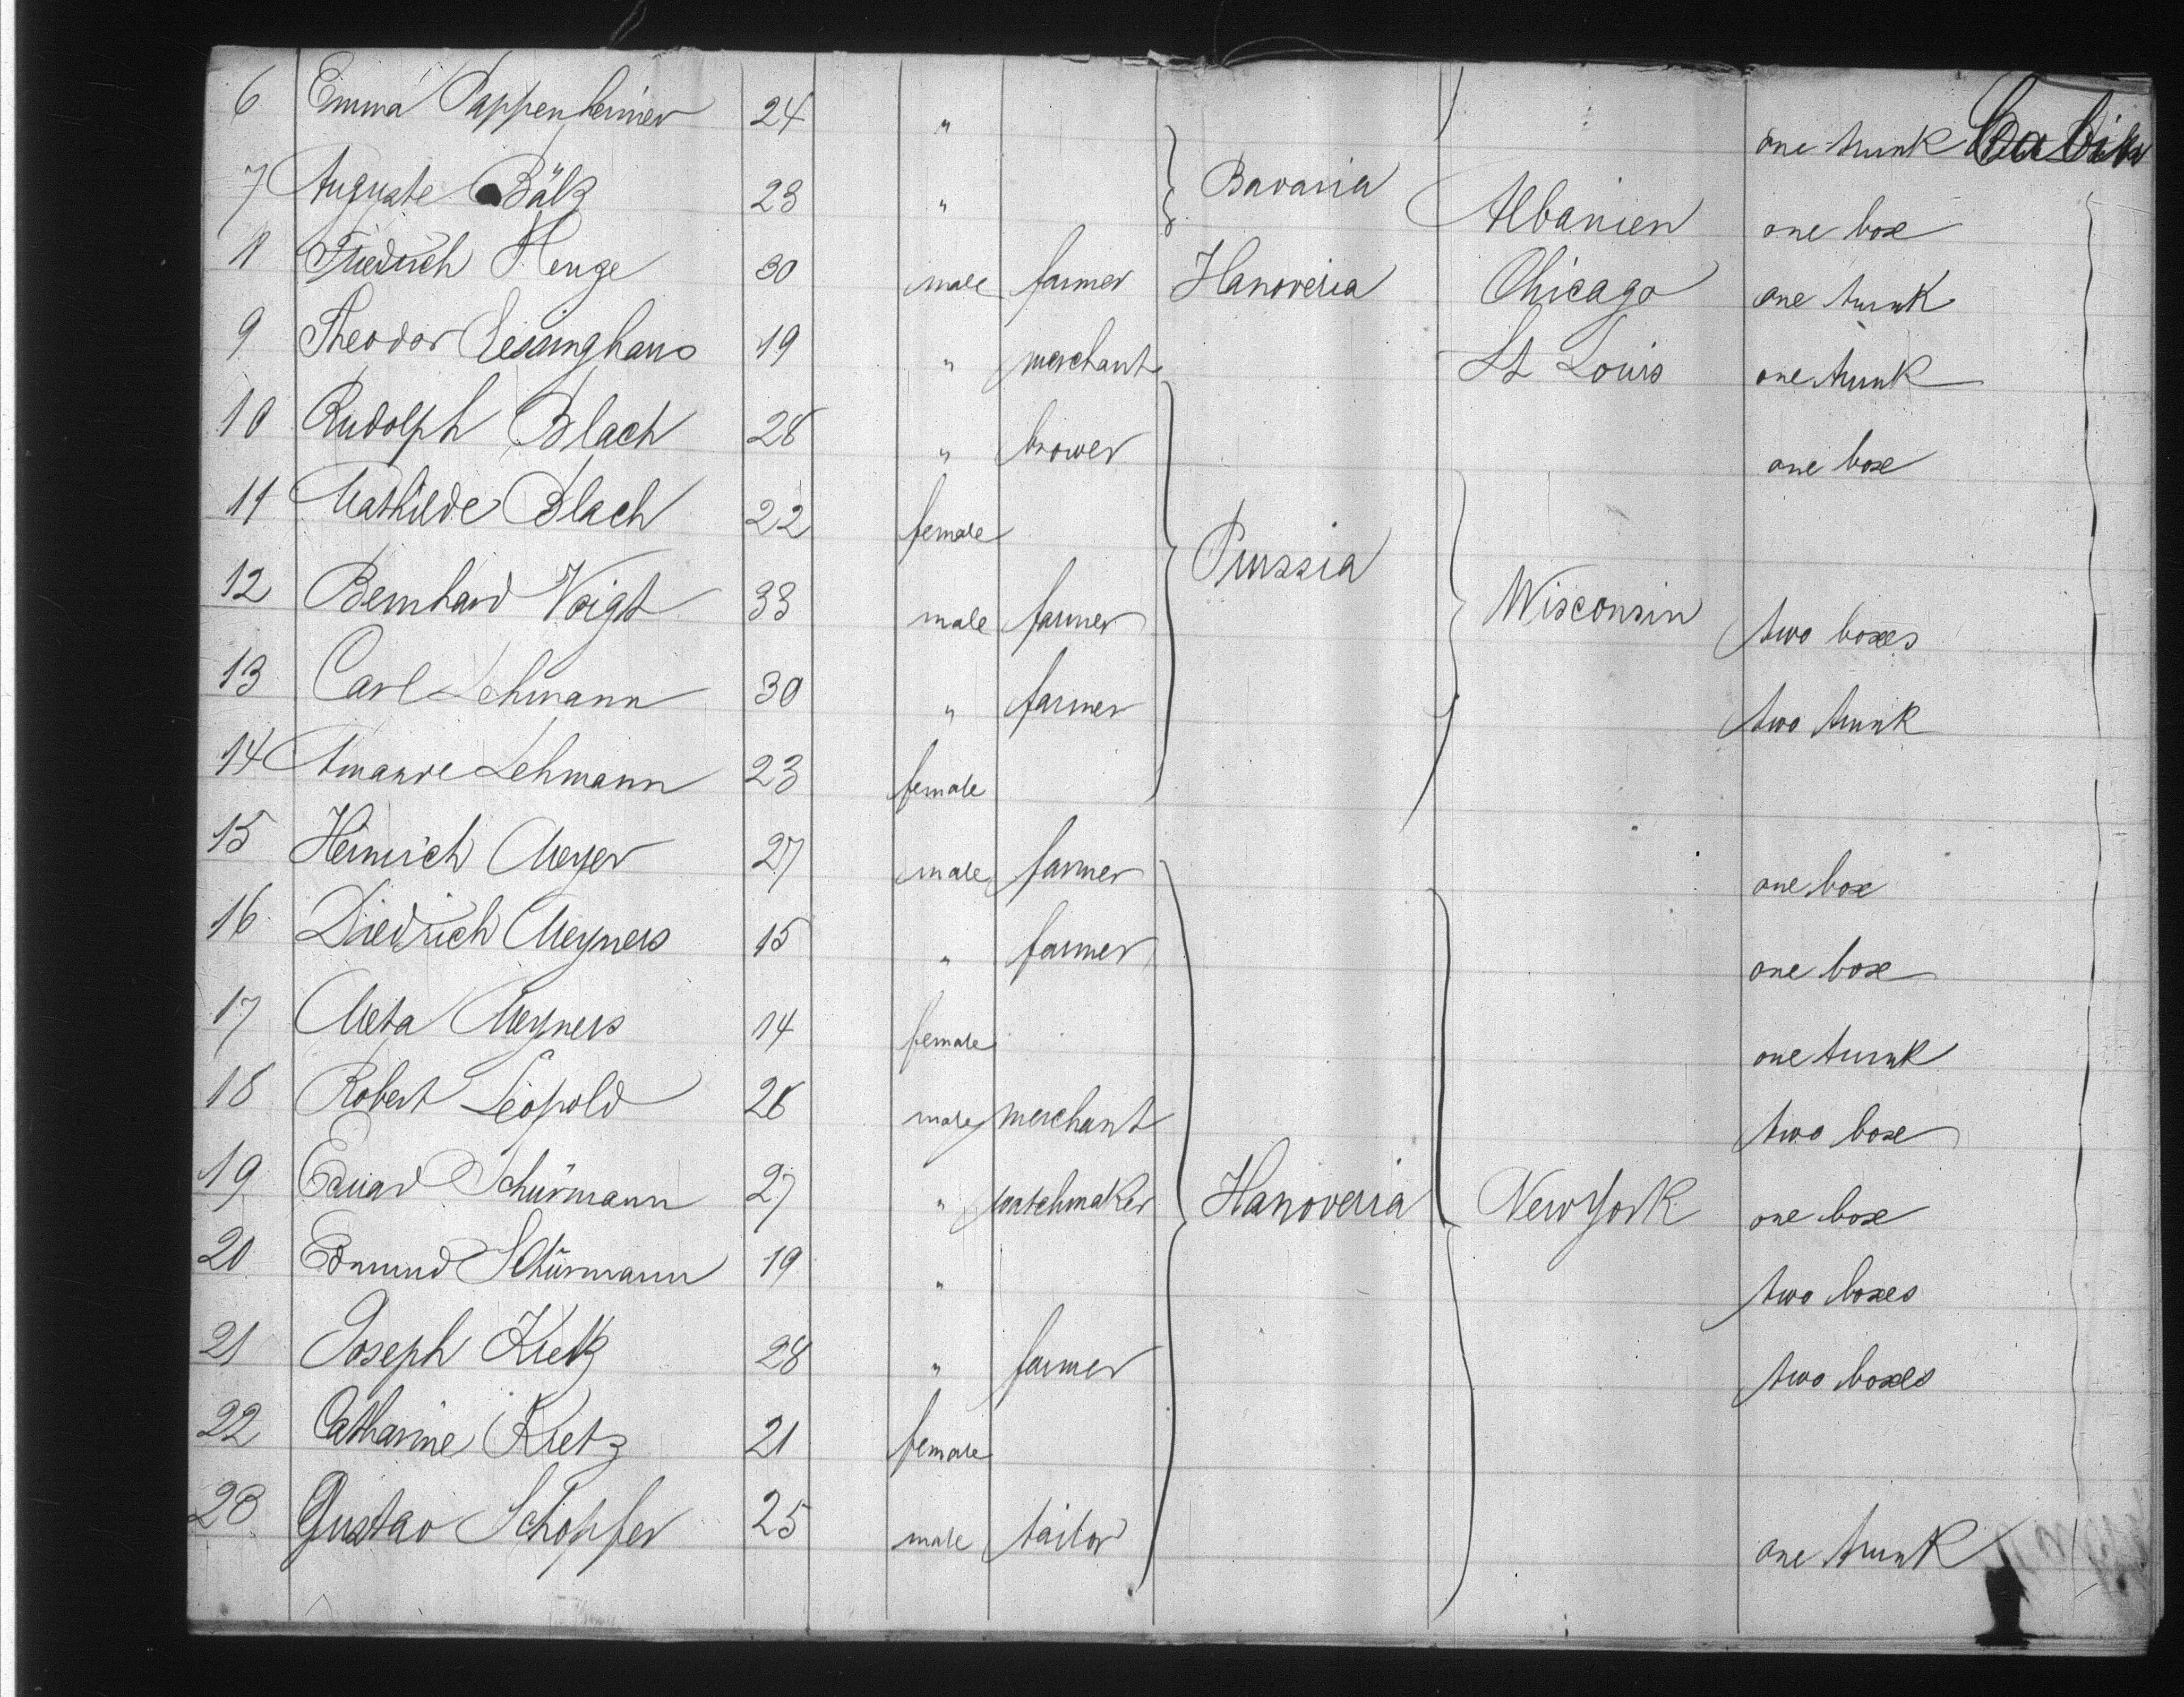 6 Emma Pappenheimer 24 " one trunk Cabin
7 Auguste Bälz 23 " Bavaria Albanien one box
8 Friedrich Henge 30 male farmer Hanoveria Chicago one trunk
9 Theodor Lessinghaus 19 " merchant St Louis one trunk
10 Rudolph Blach 28 " brower one box
11 Mathilde Blach 22 female Prussia
12 Bernhard Voigt 33 male farmer Wisconsin two boxes
13 Carl Lehmann 30 " farmer two trunk
14 Amande Lehmann 23 female
15 Heinrich Meyer 27 male farmer one box
16 Diedrich Meyners 15 " farmer one box
17 Meta Meyners 14 female one trunk
18 Robert Leopold 26 male merchant two box
19 Eduard Schürmann 27 " watchmaker Hanoveria New York one box
20 Edmund Schürmann 19 " two boxes
21 Joseph Kietz 28 " farmer two boxes
22 Catharine Kietz 21 female
23 Gustav Schopfer 25 male tailor one trunk